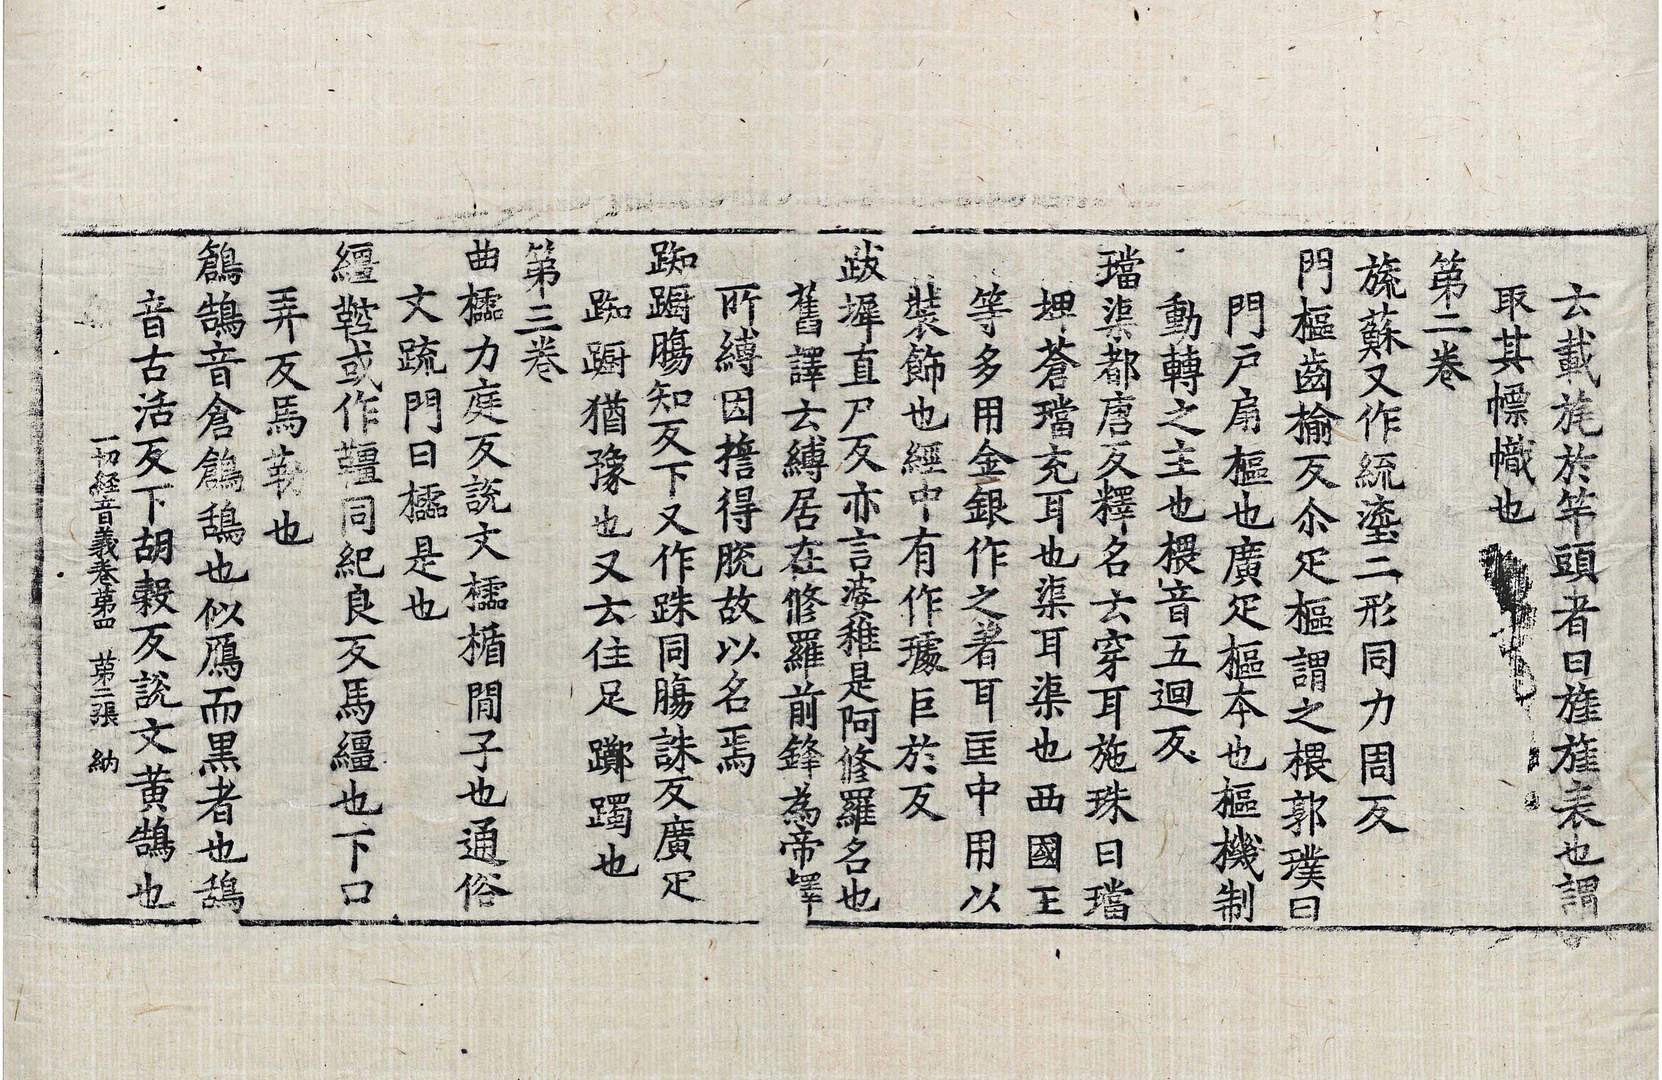 云載旄於竿頭者曰旌旌表也謂
取其幖幟也
第二卷
旒蘇又作統瀅二形同力周反
門樞齒榆反尒疋樞謂之椳郭璞曰
門戶扇樞也廣疋樞本也樞機制
動轉之主也椳音五迴反
璫渠都唐反釋名云穿耳施珠曰璫
埋蒼璫充耳也渠耳渠也西國王
等多用金銀作之著耳匡中用以
裝飾也經中有作璩巨於反
跋墀直尸反亦言婆稚是阿修羅名也
舊譯云縛居在修羅前鋒為帝釋
所縛因擔得脫故以名焉
踟躕腸知反下又作跦同腸誅反廣疋
踟躕猶豫也又云住足躑躅也
第三卷
曲櫺力庭反說文櫺楯間子也通俗
文疏門曰櫺是也
繮鞚或作韁同紀良反馬繮也下口
弄反馬勒也
鶬鵠音倉鶬鴰也似鴈而黑者也鴰
音古活反下胡穀反說文黃鵠也
一切経音義卷第四 第二張 納